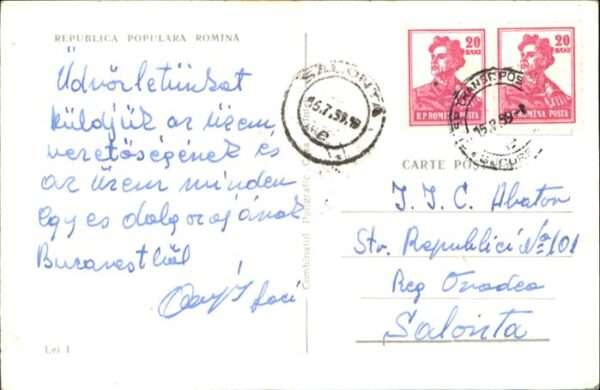 REPUBLICA POPULARA ROMINA
Üdvözletünket
küldjük az üzem
vezetöségének és
az üzem minden
egyes dolgozojának
Bucarestböl
Laci
Lei 1
Combinatul Poligrafic
SALONTA
16.7.59.19
20
BANI
R.P. ROMINA POSTA
20
BANI
R.P. ROMINA POSTA
CARTE POSTALA
I. I. C. Abator
Str. Republicii No 101
Reg Oradea
Salonta